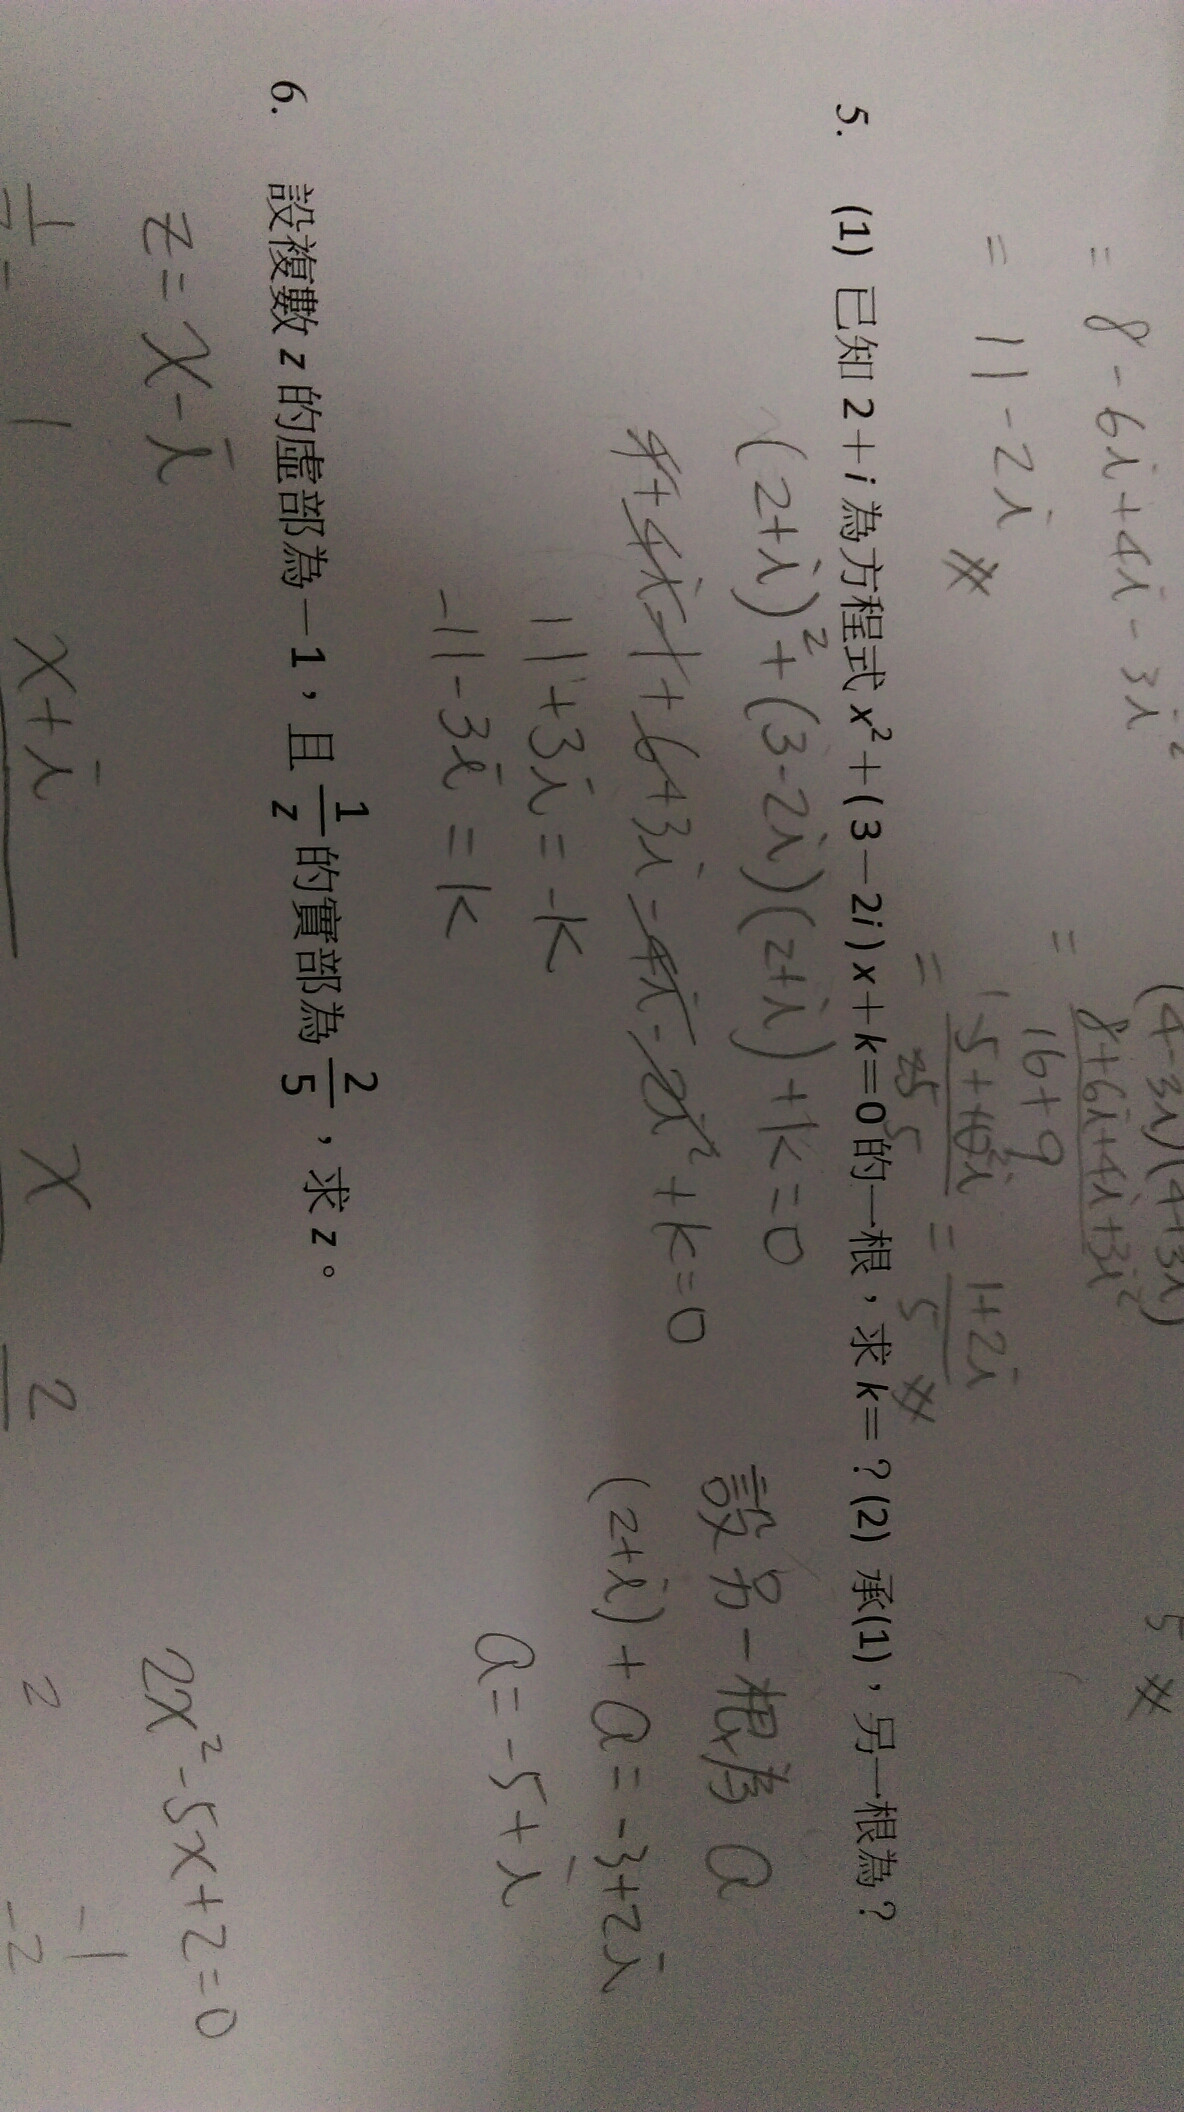 = 8-6i+4i-3i²
= 11-2i #
(4-3i)(4+3i)
= 8+6i+4i+3i²
16+9
= 5+10i = 1+2i
25 5 #
5 #
5. (1) 已知 2+i 為方程式 x²+(3-2i)x+k=0 的一根，求 k=？(2) 承(1)，另一根為？
(2+i)²+(3-2i)(2+i)+k=0
4+4i-1+6+3i-4i-2i²+k=0
11+3i=-k
-11-3i=k
設另一根為 a
(2+i)+a=-3+2i
a=-5+i
6. 設複數 z 的虛部為-1，且 1/z 的實部為 2/5，求 z。
z=x-i
2x²-5x+2=0
1 x+i x 2
2 -1
-2